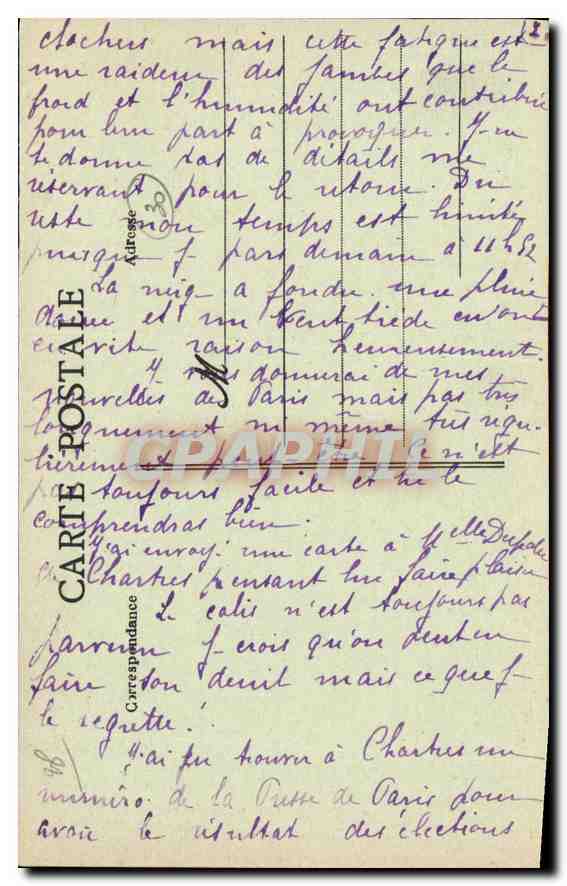 2
clochers mais cette fatigue est
une raideur des jambes que le
froid et l'humidité ont contribué
pour leur part à provoquer. J- ne
te donne pas de détails me
réservant pour le retour. Du
reste mon temps est limité
puisque j- pars demain à 11 h 52
La neige a fondu. une pluie
et un vent tiède en ont
eu vite raison heureusement.
J- vous donnerai de mes
nouvelles de Paris mais pas très
longuement ni même très régu-
lièrement ce n'est
pas toujours facile et tu le
comprendras bien.
J'ai envoyé une carte à Melle
de Chartres pensant lui faire plaisir
Le colis n'est toujours pas
parvenu j- crois qu'on peut en
faire son deuil mais ce que j-
le regrette!
J'ai pu trouver à Chartres un
numéro de la Presse de Paris pour
avoir le résultat des élections
CARTE POSTALE
Correspondance
Adresse
M
30
98
CPAPHIL